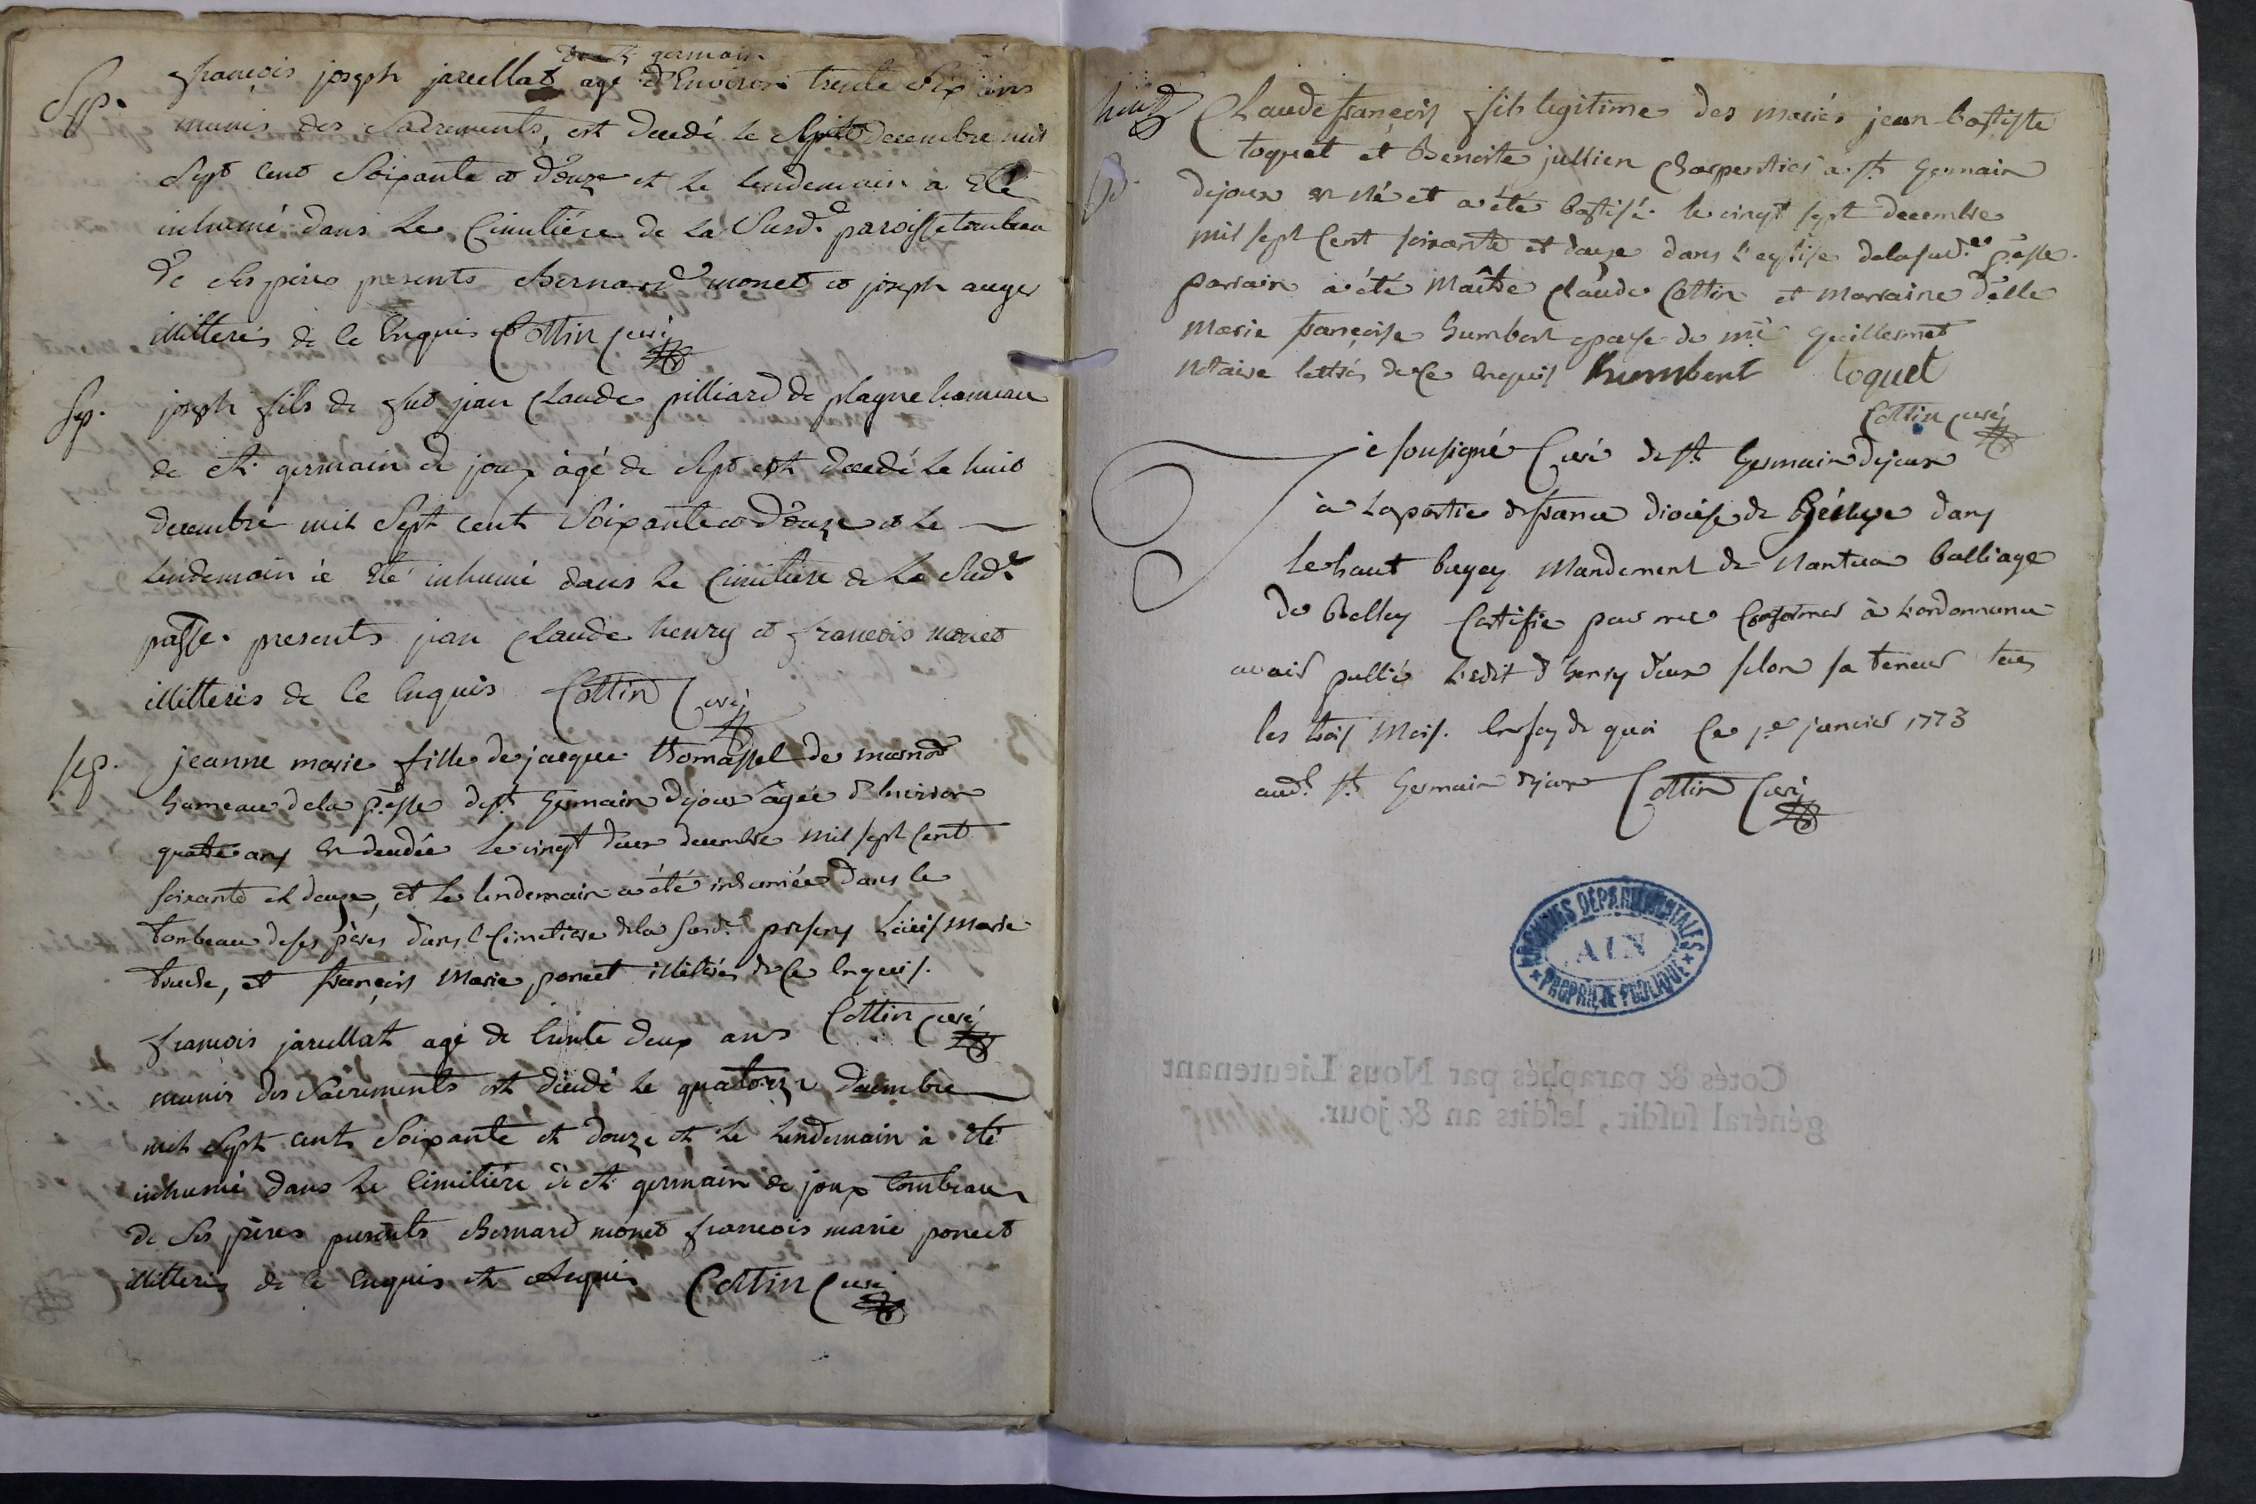 de St germain
Sep. françois joseph jarullat agé d'Environ trente Six ans
munis des Sacrements, est decedé le Sept decembre mil
Sept cent Soixante et d'ouze et le lendemain a eté
inhumé dans le Cimitiére de la Susd.e paroisse tombeau
de Ses péres presents Bernard monet et joseph auger
illitterés de ce Enquis Cottin Curé
Sep. joseph fils de feu jean Claude pilliard de plagne hameau
de St. germain de joux âgé de Sept est decedé le huit
decembre mil Sept cent Soixante et d'ouze et le
lendemain a eté inhumé dans le Cimitiere de la Sud.e
passe. presents jean Claude henry et francois monet
illitterés de ce Enquis Cottin Curé
sep. jeanne marie fille de jacque thomasset de
hameau dela p.esse de st. Germain dejoux âgée d'Environ
quatre ans Es decedée le vingt deux decembre mil sept Cent
soixante et douze, et le lendemain a été inhumée dans le
tombeau de ses péres dans l Cimetiere dela Susd.e presens Loüis Marie
et françois Marie poncet illittérés de Ce Enquis.
Cottin Curé
francois jarullat agé de trente deux ans
munis des Sacrements est decedé le quatorze decembre
mil Sept cent Soixante et douze et le lendemain a eté
inhumé dans le Cimitiére de St. germain de joux tombeau
de Ses péres presents Bernard monet francois marie poncet
illitterés de ce Enquis et Requis Cottin Curé
Claude françois fils legitime des mariés jean-baptiste
toquet et Benoite jullien Charpentier a st. Germain
dejoux est né et a été baptisé le vingt sept decembre
mil sept Cent soixante et douze dans l'eglise dela sud.e p.esse.
parrain a été Maître Claude Cottin et Marraine d'elle
Marie françoise humbert epouse de m.e Guillermet
Notaire lettrés de Ce Enquis humbert toquet
Cottin curé
Je sousigné Curé de st. Germain dejoux
à La partie de france diocèse de Géneve dans
le haut bugey Mandement de Nantua balliage
de Belley Certifie pour me Conformer à L'ordonnance
avoir publié L'edit d'henry deux selon sa teneur tous
les trois Mois. En foy de quoi Ce 1.er janvier 1773
aud.t st. Germain dejoux Cottin Curé
ARCHIVES DÉPARTEMENTALES
AIN
PROPRIÉTÉ PUBLIQUE
Cotés & paraphés par Nous Lieutenant
général susdit, lesdits an & jour.